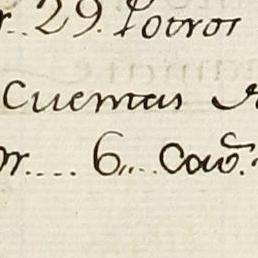 r. 29. Potros
Cuentas
or.... 6,,.. Cavõ.